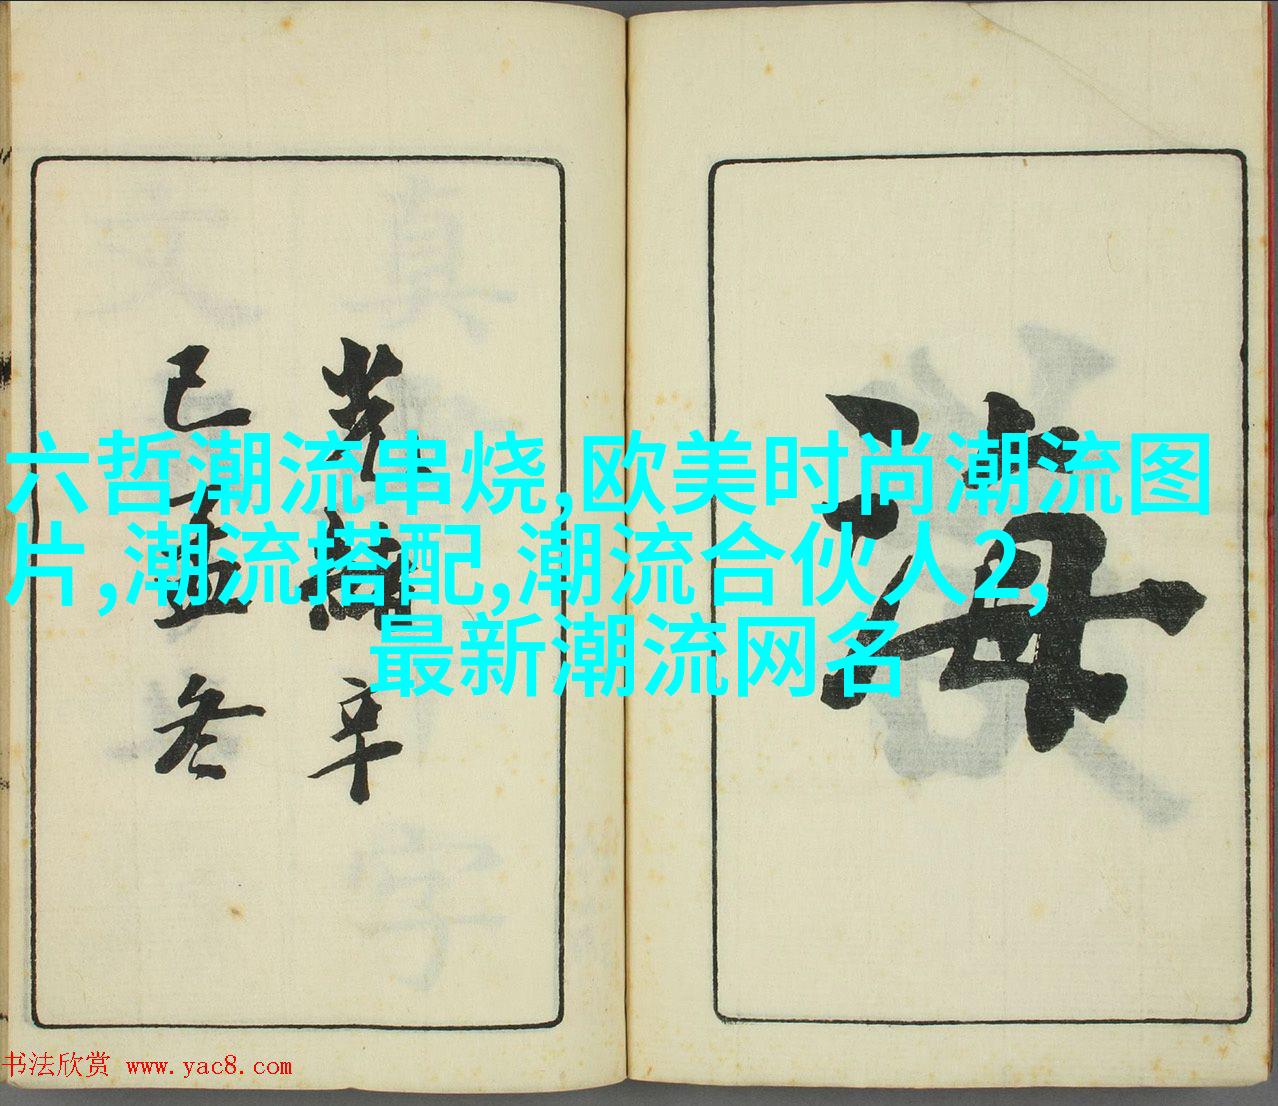 海
光緒辛
巳孟冬
六哲潮流串烧,欧美时尚潮流图
片,潮流搭配,潮流合伙人2,
最新潮流网名
书法欣赏 www.yac8.com